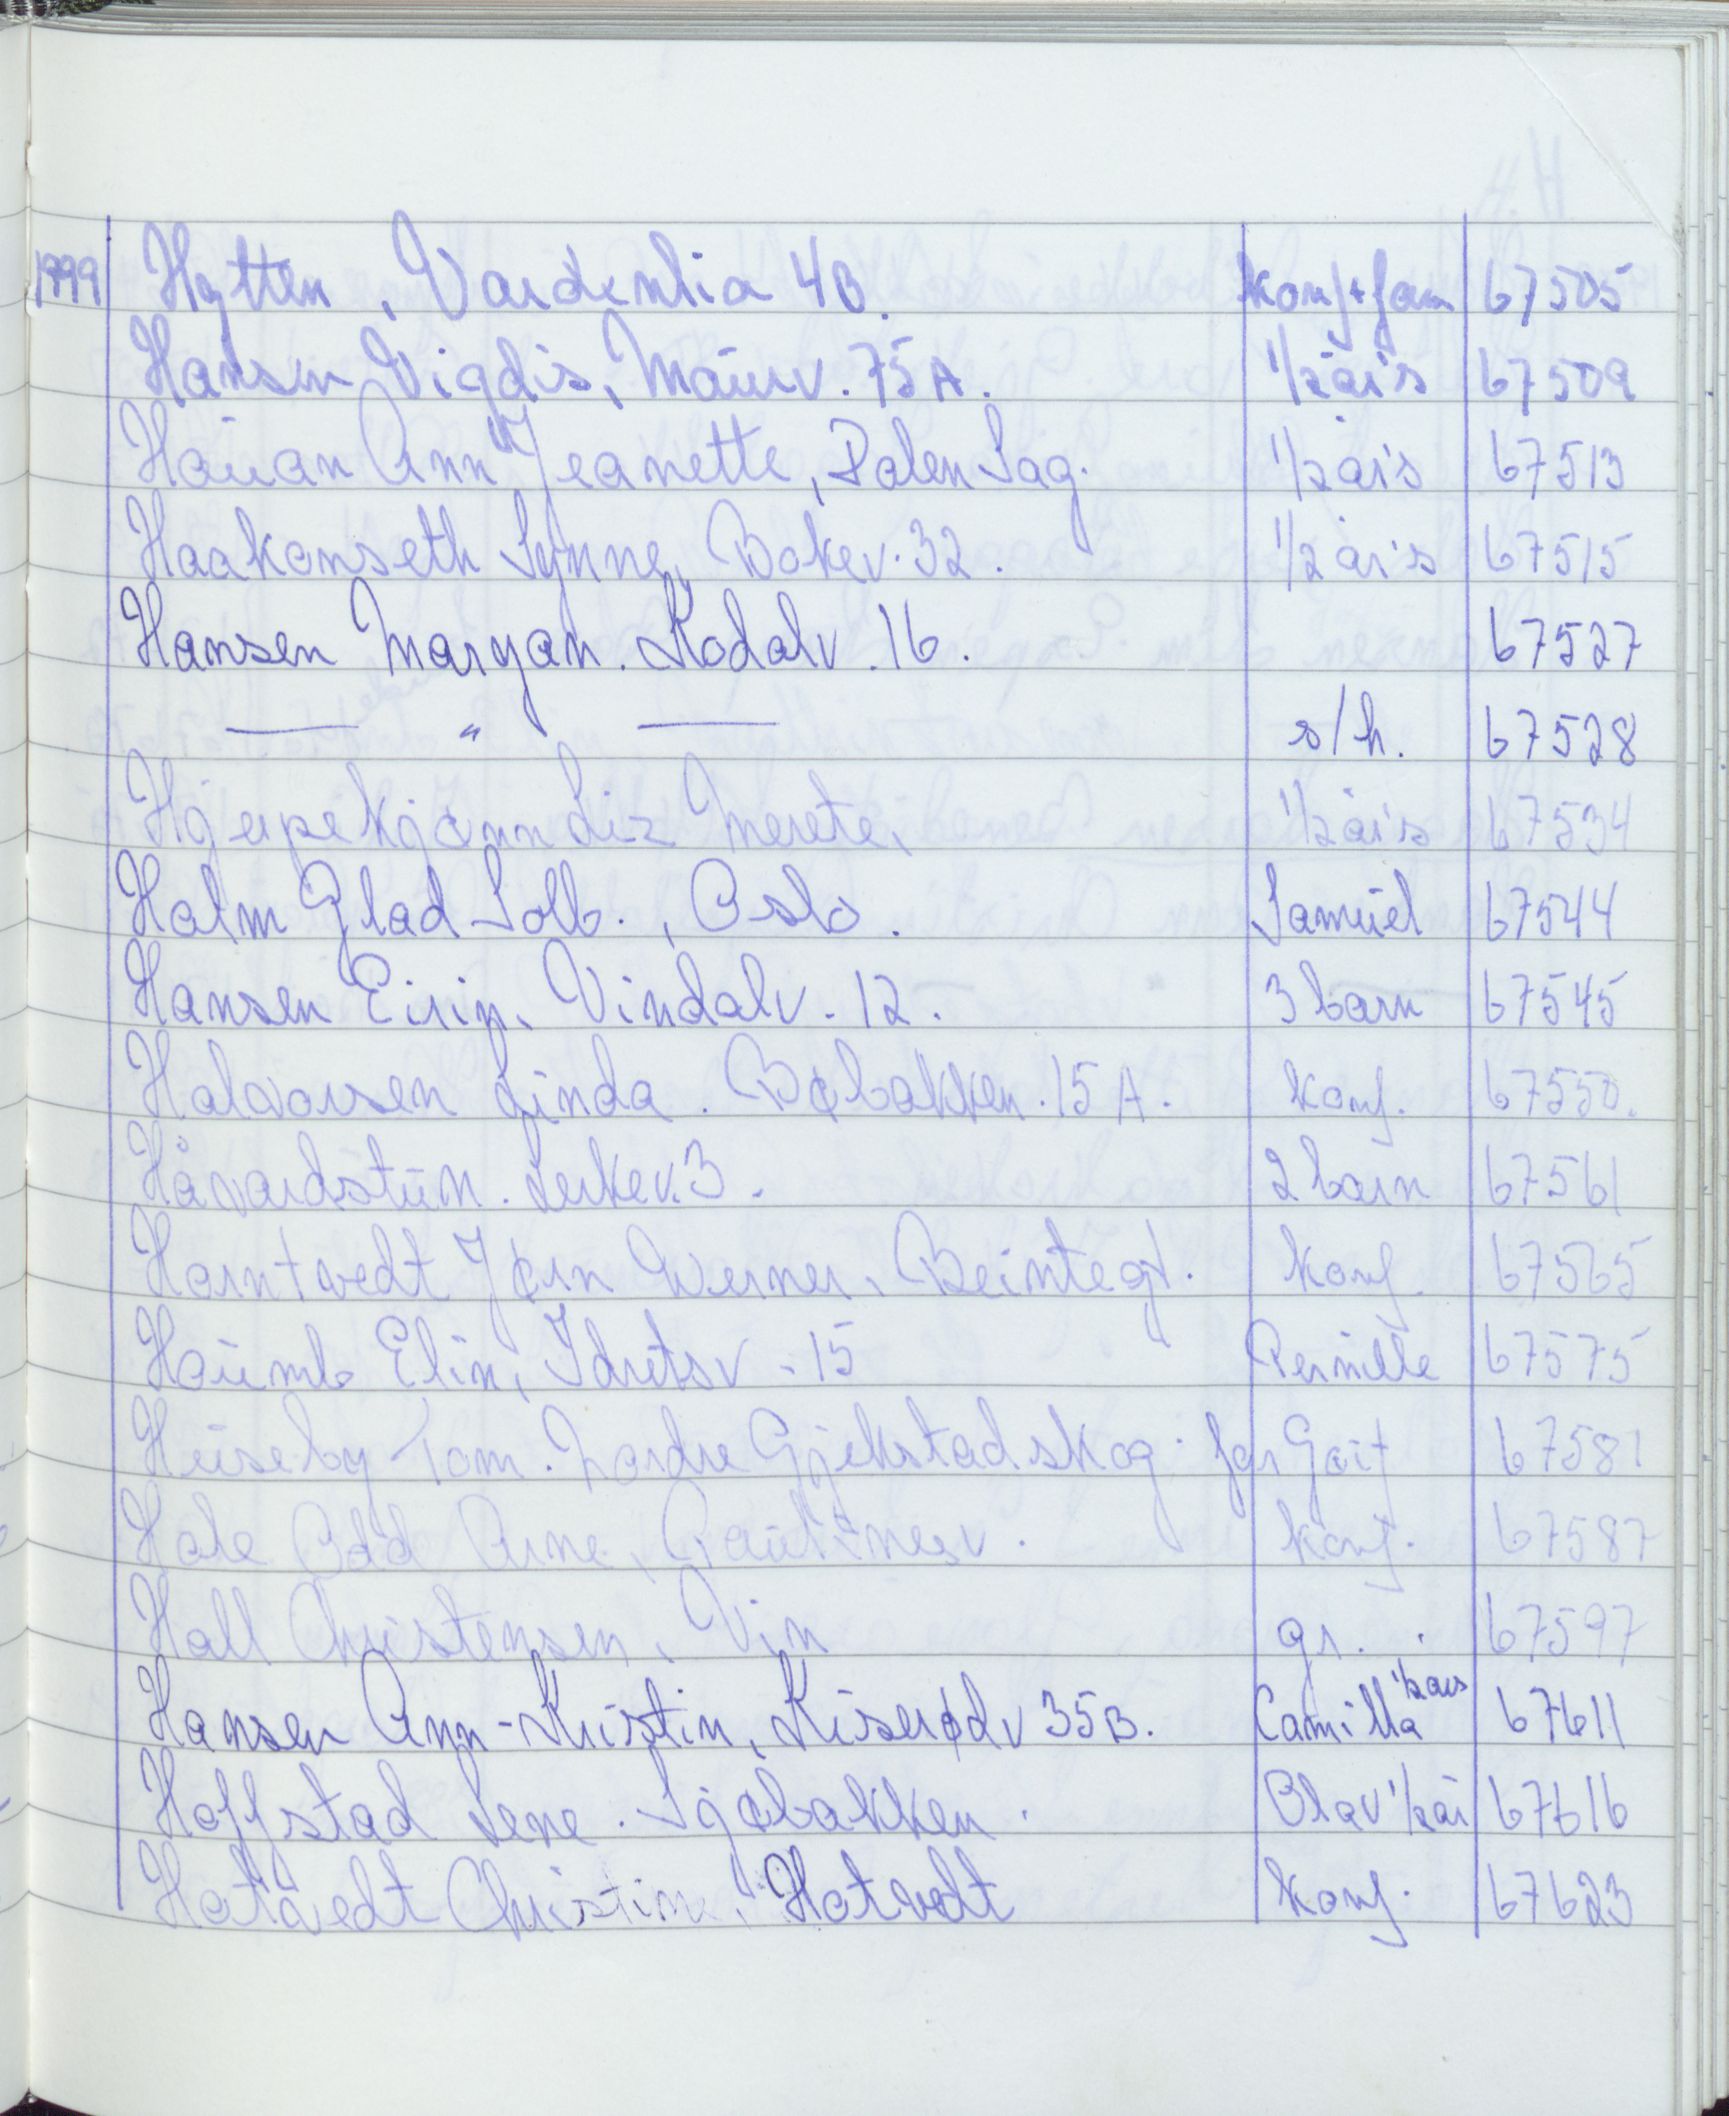 1999 Hytten, Vardenlia 4B. konf+fam 67505
Hansen Vigdis, Maurv. 75A. 1/2 års 67509
Hauan Ann Jeanette, Dalen Sag. 1/2 års 67513
Haakonseth Synne, Bokev. 32. 1/2 års 67515
Hansen Maryan. Kodalv. 16. 67527
— " — s/h. 67528
Hjerpekjønn Liz Merete, 1/2 års 67534
Holm Glad Solb., Oslo. Samuel 67544
Hansen Eirin, Vindalv. 12. 3 barn 67545
Halvorsen Linda. Bøbakken. 15A. konf. 67550.
Håvardstun. Lerkev. 3. 2 barn 67561
Horntvedt Jørn Werner, Beintegt. konf. 67565
Haumb Elin, Idretsv. 15 Pernille 67575
Huseby Tom. Nordre Gjekstad skog. for Goif 67581
Hole Odd Arne, konf. 67587
Hall Christensen, Vin gr. 67597
Hansen Ann-Kristin, Kiserødv 35B. Camilla 1/2 års 67611
Hoffstad Lene. Sjøbakken. Olav 1/2 år 67616
Hotvedt Christine, Hotvedt konf. 67623